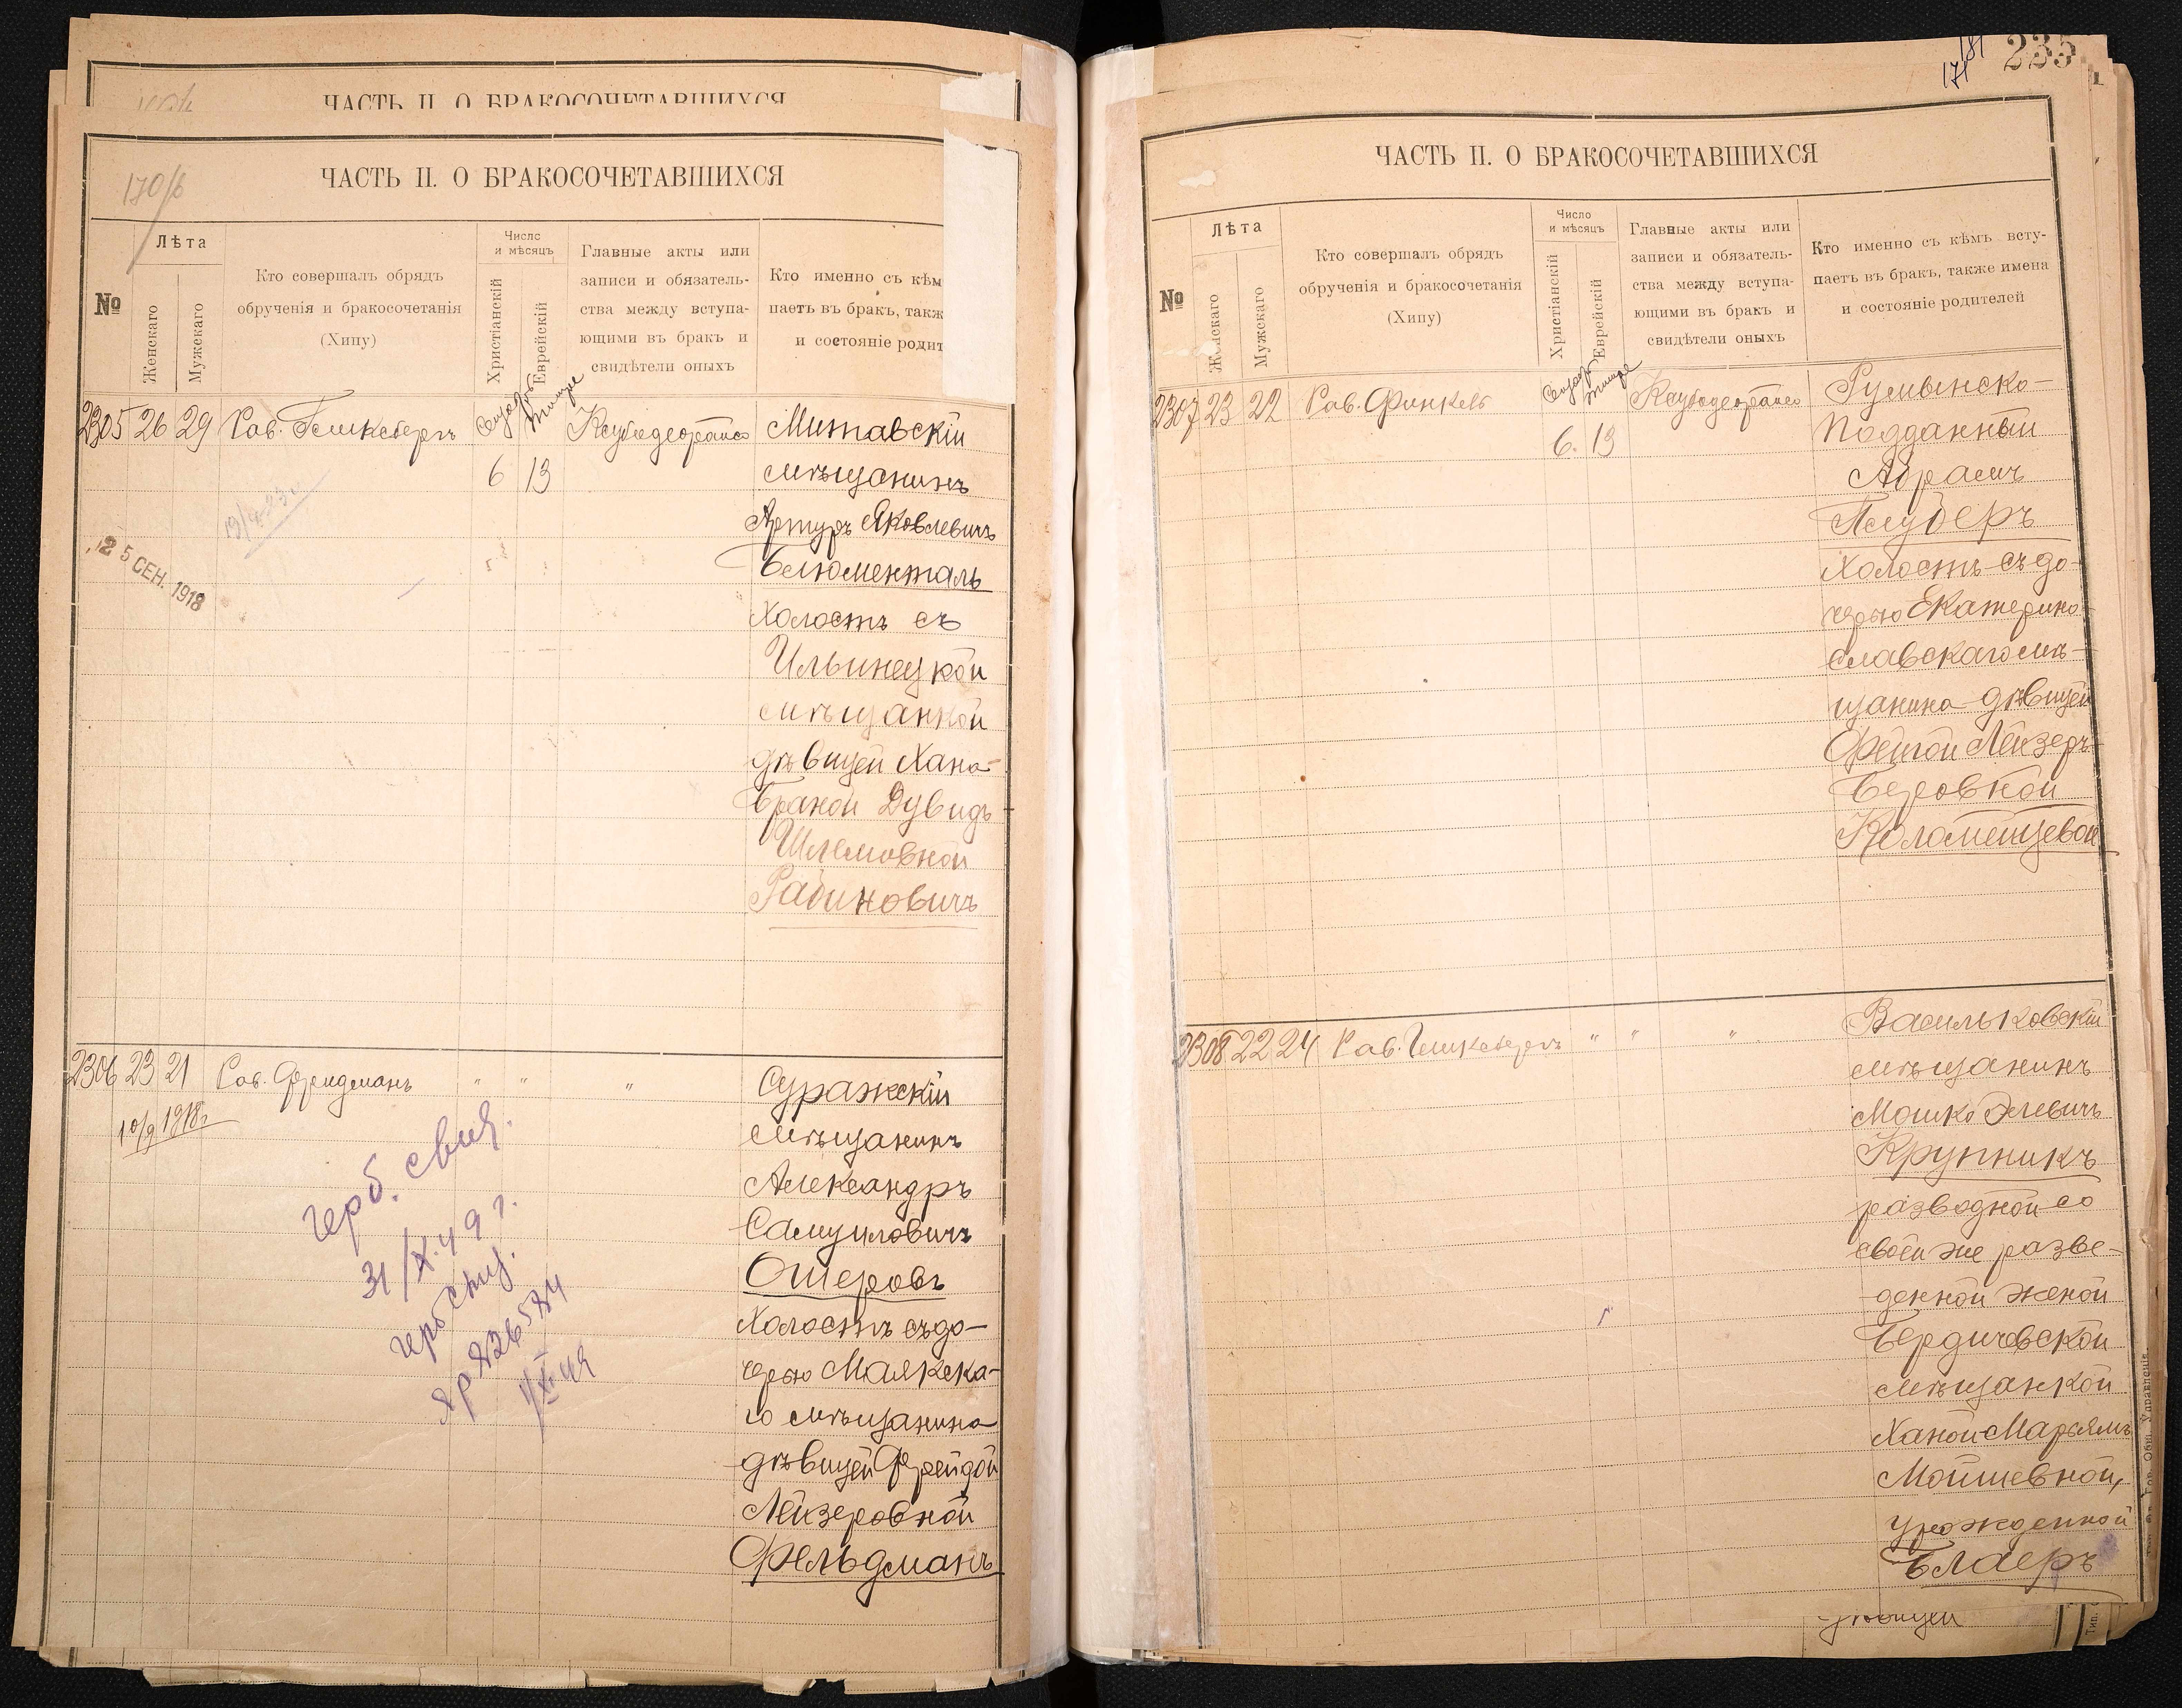 ЧАСТЬ II. О БРАКОСОЧЕТАВШИХСЯ
170/б
ЧАСТЬ II. О БРАКОСОЧЕТАВШИХСЯ
№
Лѣта
Женскаго
Мужескаго
Кто совершалъ обрядъ
обрученія и бракосочетанія
(Хипу)
Число
и мѣсяцъ
Христіанскій
Еврейскій
Главные акты или
записи и обязатель-
ства между вступа-
ющими въ бракъ и
свидѣтели оныхъ
Кто именно съ кѣм
паетъ въ бракъ, такж
и состояніе родит
2305 26 29 Рав. Гликсбергъ
6 13
Митавскій
мѣщанинъ
Артуръ Яковлевичъ
Блюменталь
Холостъ съ
Ильинецкой
мѣщанкой
дѣвицей Хана-
Браной Дувидъ-
Шлемовной
Рабиновичъ
25 СЕН. 1918
2306 23 21 Рав. Фридманъ " " "
10/9 1918г
Суражскій
мѣщанинъ
Александръ
Самуиловичъ
Ошеровъ
Холостъ съ до-
черью Маякска-
го мѣщанина
дѣвицей Фрейдой
Лейзеровной
Фельдманъ
герб. свид.
31/X 49 г.
181
171
235
ЧАСТЬ II. О БРАКОСОЧЕТАВШИХСЯ
№
Лѣта
Женскаго
Мужескаго
Кто совершалъ обрядъ
обрученія и бракосочетанія
(Хипу)
Число
и мѣсяцъ
Христіанскій
Еврейскій
Главные акты или
записи и обязатель-
ства между вступа-
ющими въ бракъ и
свидѣтели оныхъ
Кто именно съ кѣмъ всту-
паетъ въ бракъ, также имена
и состояніе родителей
2307 23 22 Рав. Финкель
6. 13
Румынско-
Подданный
Абрамъ
Таубер​ъ
Холостъ съ до-
черью Екатерино-
славскаго мѣ-
щанина дѣвицей
Фейгой Лейзеръ-
Беровной
Коломейцевой
2308 22 24 Рав. Гликсбергъ " " "
Васильковскій
мѣщанинъ
Мошко Элевичъ
Крупникъ
разводной со
своей же разве-
денной женой
Бердичевской
мѣщанкой
Ханой Марьямъ
Мойшевной,
урожденной
Блаеръ
дѣвицей